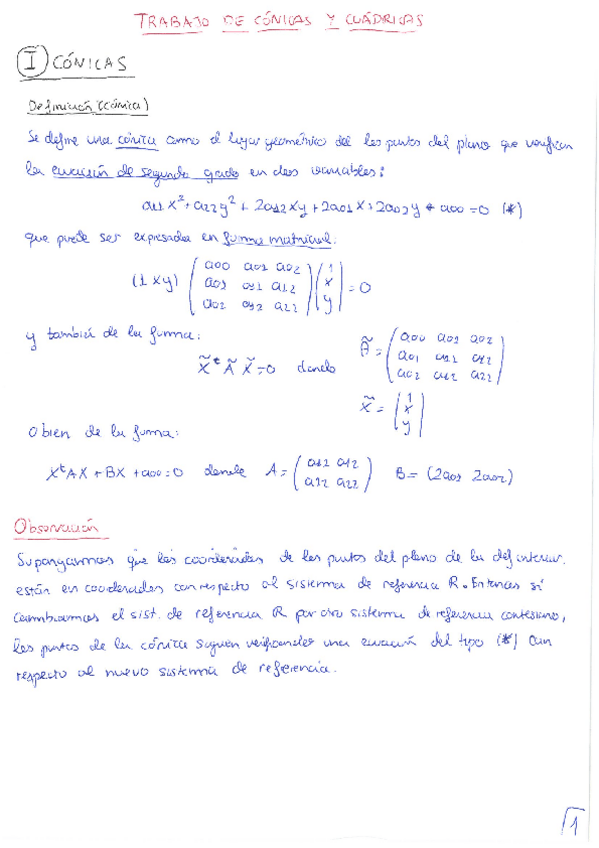 TRABAJO DE CÓNICAS Y CUÁDRICAS
I CÓNICAS
Definición (cónica)
Se define una cónica como el lugar geométrico de los puntos del plano que verifican
la ecuación de segundo grado en dos variables:
a11x² + a22y² + 2a12xy + 2a01x + 2a02y + a00 = 0 (*)
que puede ser expresada en forma matricial:
(1 x y) ( a00 a01 a02 ; a01 a11 a12 ; a02 a12 a22 ) ( 1 ; x ; y ) = 0
y también de la forma:
X̃ᵗ Ã X̃ = 0 donde Ã = ( a00 a01 a02 ; a01 a11 a12 ; a02 a12 a22 )
X̃ = ( 1 ; x ; y )
O bien de la forma:
XᵗAX + BX + a00 = 0 donde A = ( a11 a12 ; a12 a22 ) B = (2a01 2a02)
Observación
Supongamos que las coordenadas de los puntos del plano de la def anterior.
están en coordenadas con respecto al sistema de referencia R. Entonces si
cambiamos el sist. de referencia R por otro sistema de referencia cartesiano,
los puntos de la cónica siguen verificando una ecuación del tipo (*) con
respecto al nuevo sistema de referencia.
1